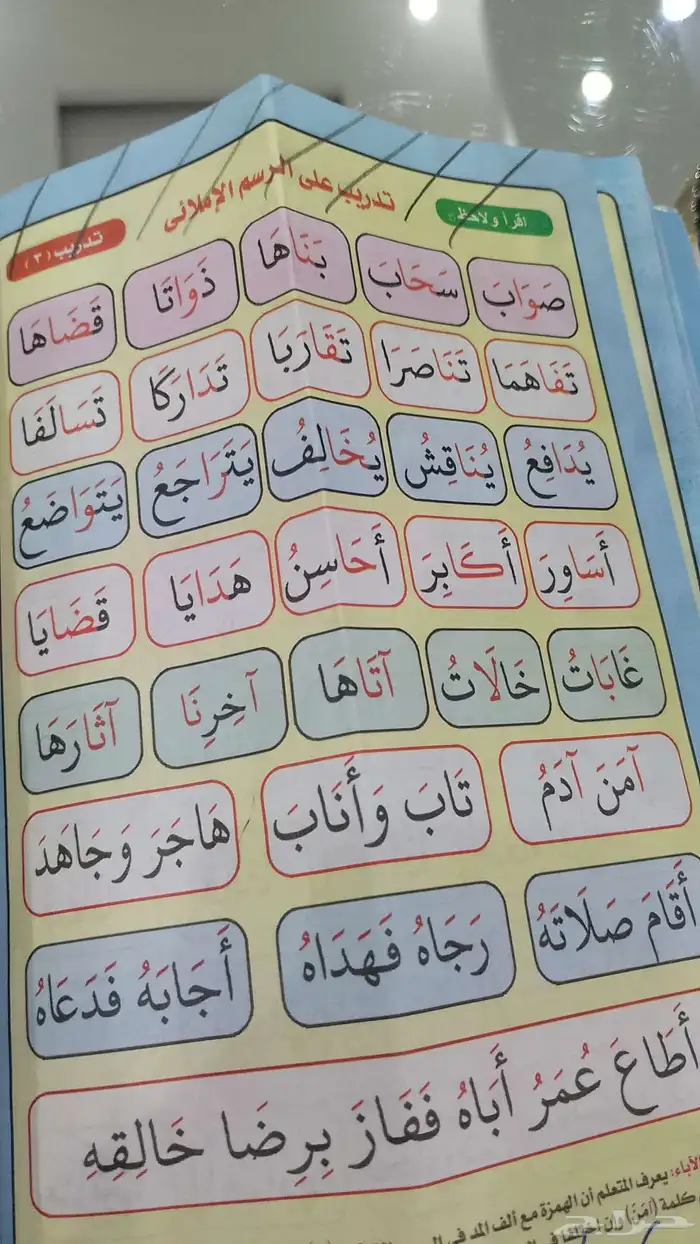 تدريب على الرسم الإملائى
اقرأ ولاحظ
تدريب (٣)
صَوَابَ سَحَابَ بَنَاهَا ذَوَاتَا قَضَاهَا
تَفَاهَمَا تَنَاصَرَا تَقَارَبَا تَدَارَكَا تَسَالَفَا
يُدَافِعُ يُنَاقِشُ يُخَالِفُ يَتَرَاجَعُ يَتَوَاضَعُ
أَسَاوِرَ أَكَابِرَ أَحَاسِنُ هَدَايَا قَضَايَا
غَابَاتُ خَالَاتُ آتَاهَا آخِرِنَا آثَارَهَا
آمَنَ آدَمُ تَابَ وَأَنَابَ هَاجَرَ وَجَاهَدَ
أَقَامَ صَلَاتَهُ رَجَاهُ فَهَدَاهُ أَجَابَهُ فَدَعَاهُ
أَطَاعَ عُمَرُ أَبَاهُ فَفَازَ بِرِضَا خَالِقِهِ
الآباء: يعرف المتعلم أن الهمزة مع ألف المد فى
كلمة (آمَنَ)